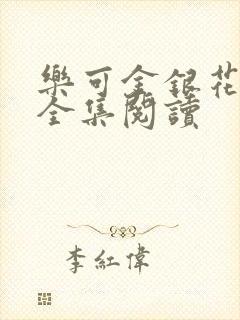 樂可金銀花
全集閱讀
李紅偉